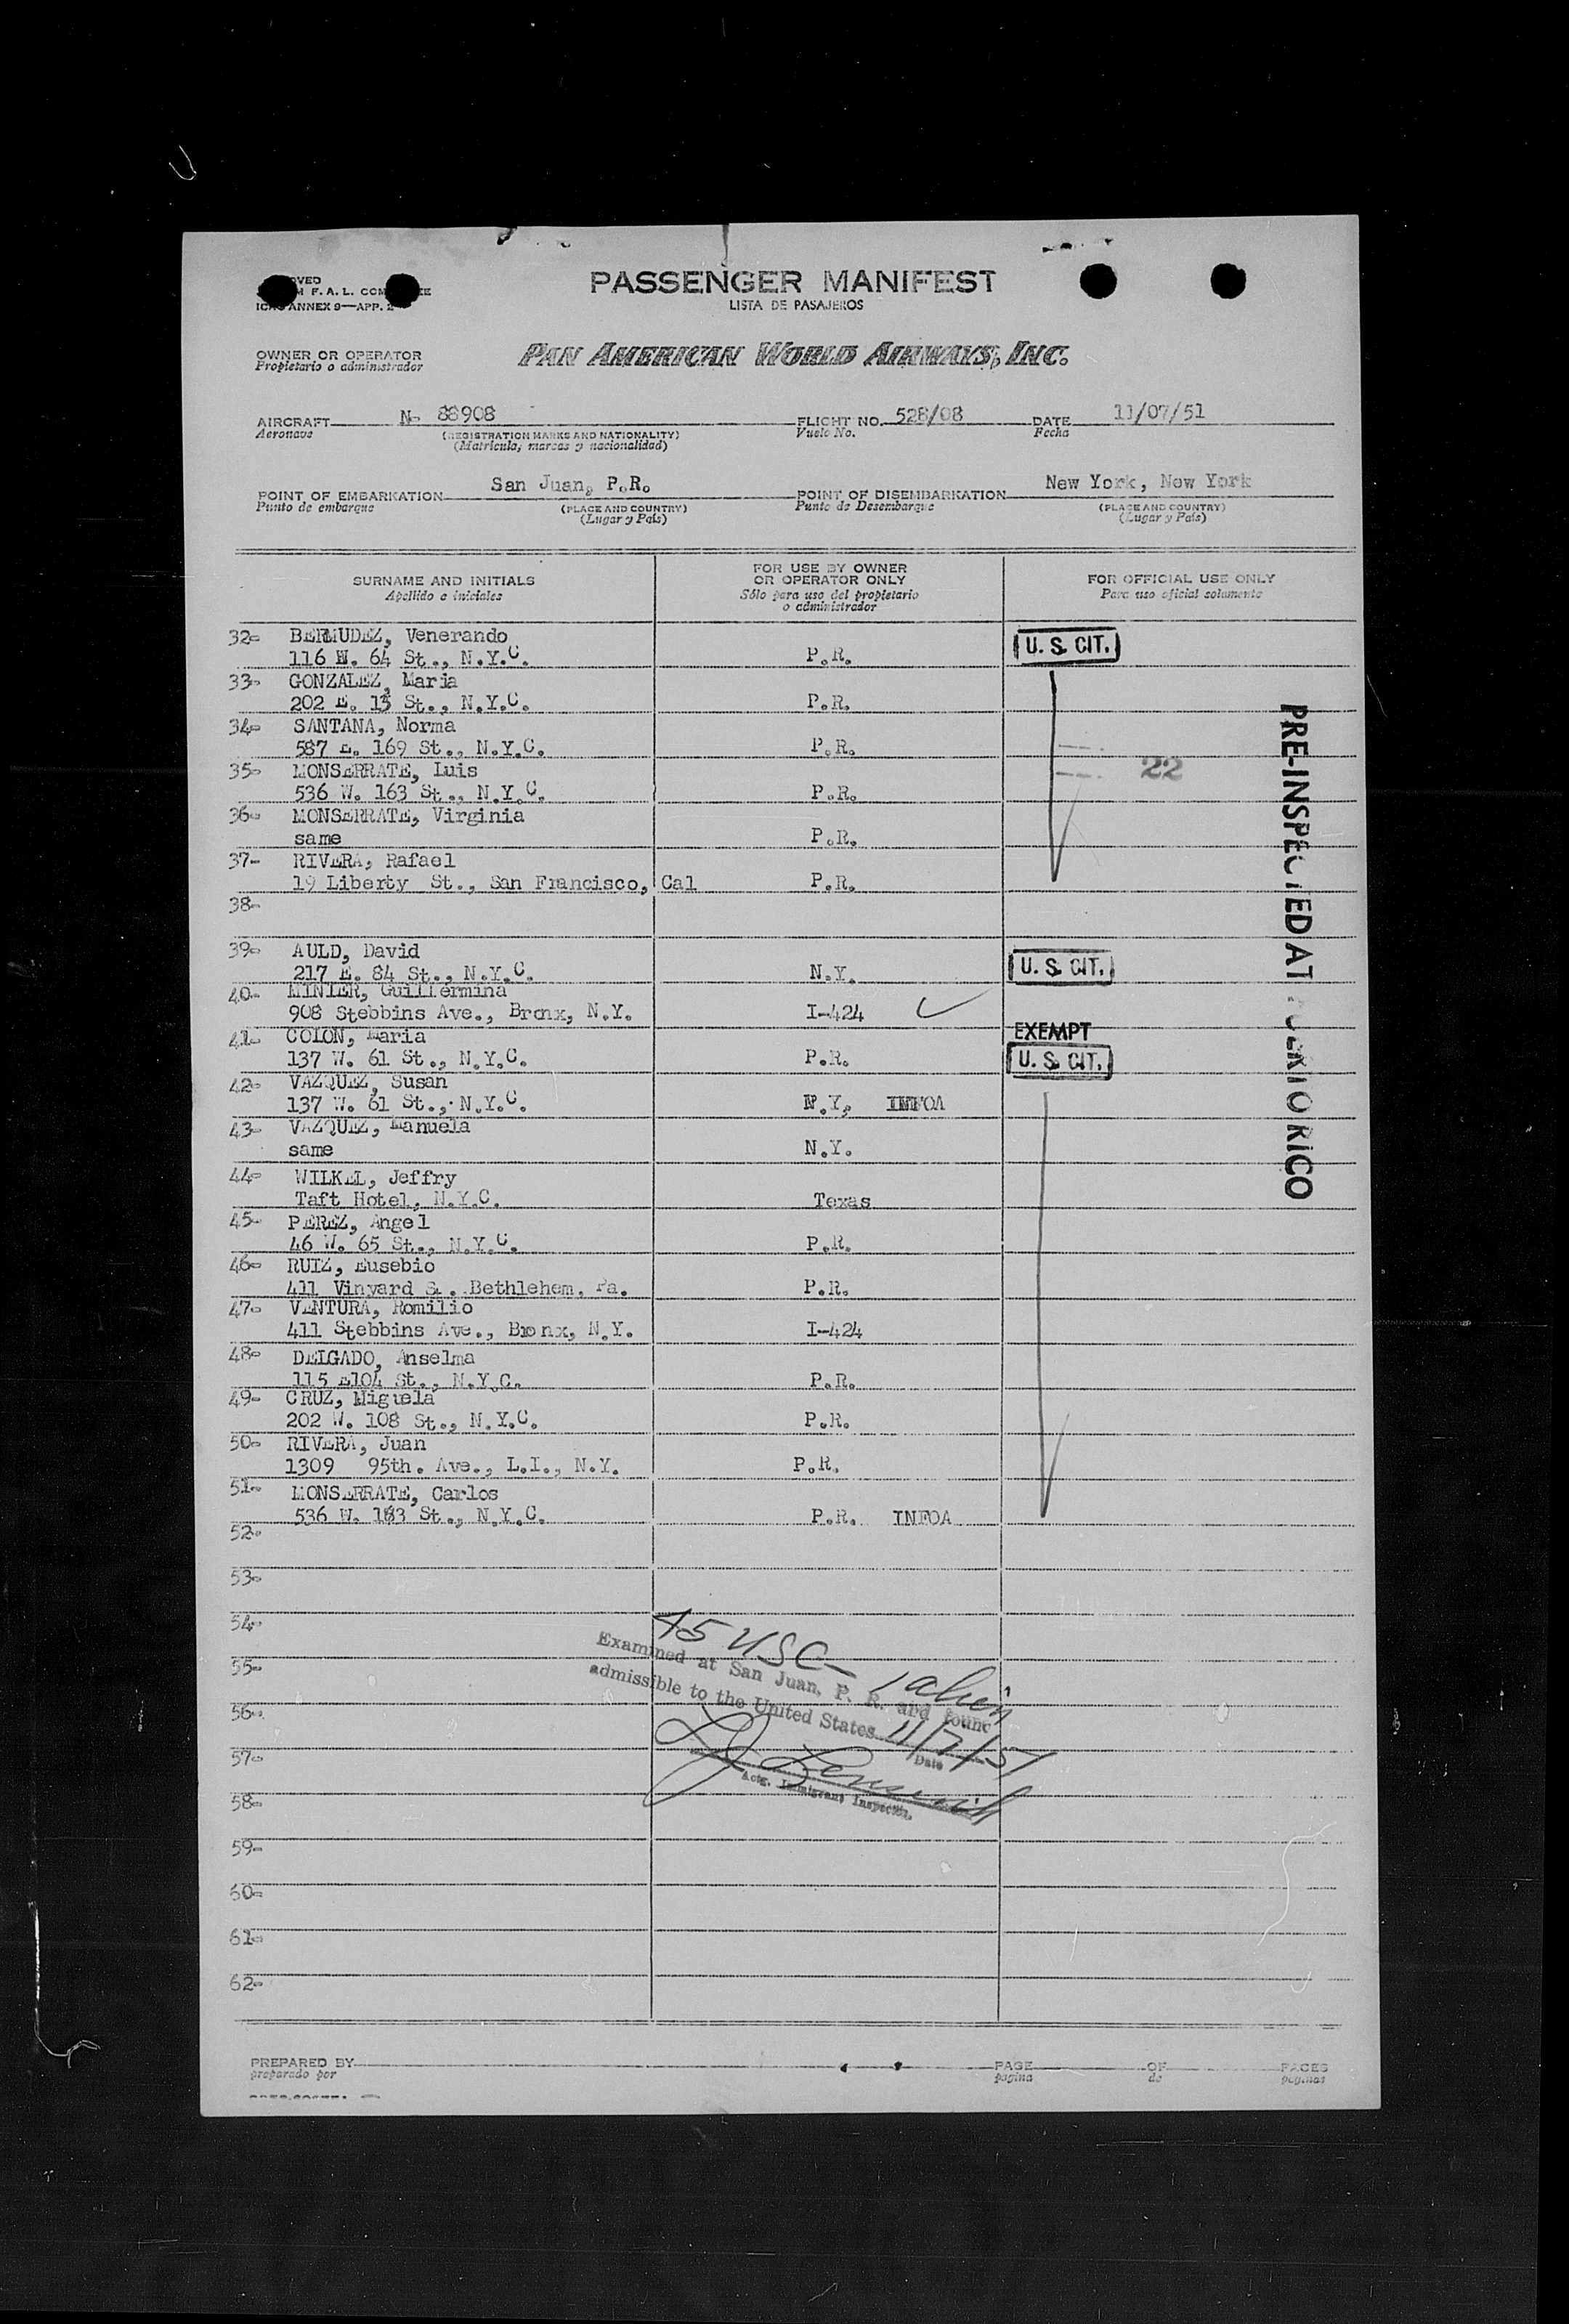 PASSENGER MANIFEST
LISTA DE PASAJEROS
F. A. L.
ANNEX 9—APP. 2
OWNER OR OPERATOR
Propietario o administrador
PAN AMERICAN WORLD AIRWAYS, INC.
AIRCRAFT N- 88908 FLIGHT NO. 528/08 DATE 11/07/51
Aeronave (REGISTRATION MARKS AND NATIONALITY) Vuelo No. Fecha
(Matrícula, marcas y nacionalidad)
POINT OF EMBARKATION San Juan, P.R. POINT OF DISEMBARKATION New York, New York
Punto de embarque (PLACE AND COUNTRY) Punto de Desembarque (PLACE AND COUNTRY)
(Lugar y País) (Lugar y País)
SURNAME AND INITIALS
Apellido e iniciales
FOR USE BY OWNER
OR OPERATOR ONLY
Sólo para uso del propietario
o administrador
FOR OFFICIAL USE ONLY
Para uso oficial solamente
32- BERMUDEZ, Venerando
116 W. 64 St., N.Y.C. P.R. U. S. CIT.
33- GONZALEZ, Maria
202 E. 13 St., N.Y.C. P.R.
34- SANTANA, Norma
587 E. 169 St., N.Y.C. P.R.
35- MONSERRATE, Luis 22
536 W. 163 St., N.Y.C. P.R.
36- MONSERRATE, Virginia
same P.R.
37- RIVERA, Rafael
19 Liberty St., San Francisco, Cal P.R.
38-
39- AULD, David
217 E. 84 St., N.Y.C. N.Y. U. S. CIT.
40- MINIER, Guillermina
908 Stebbins Ave., Bronx, N.Y. I-424
EXEMPT
41- COLON, Maria
137 W. 61 St., N.Y.C. P.R. U. S. CIT.
42- VAZQUEZ, Susan
137 W. 61 St., N.Y.C. N.Y, INFOA
43- VAZQUEZ, Manuela
same N.Y.
44- WILKEL, Jeffry
Taft Hotel, N.Y.C. Texas
45- PEREZ, Angel
46 W. 65 St., N.Y.C. P.R.
46- RUIZ, Eusebio
411 Vinyard S . Bethlehem, Pa. P.R.
47- VENTURA, Romilio
411 Stebbins Ave., Bronx, N.Y. I-424
48- DELGADO, Anselma
115 E104 St., N.Y.C. P.R.
49- CRUZ, Miguela
202 W. 108 St., N.Y.C. P.R.
50- RIVERA, Juan
1309 95th. Ave., L.I., N.Y. P.R.
51- MONSERRATE, Carlos
536 W. 183 St., N.Y.C. P.R. INFOA
52-
53-
54-
55-
56-
57-
58-
59-
60-
61-
62-
PRE-INSPECTED AT PUERTO RICO
45 USC
1 alien
Examined at San Juan, P. R. and found
admissible to the United States 11/7/51
Date
Actg. Immigrant Inspector.
PREPARED BY PAGE OF PAGES
preparado por pagina de paginas